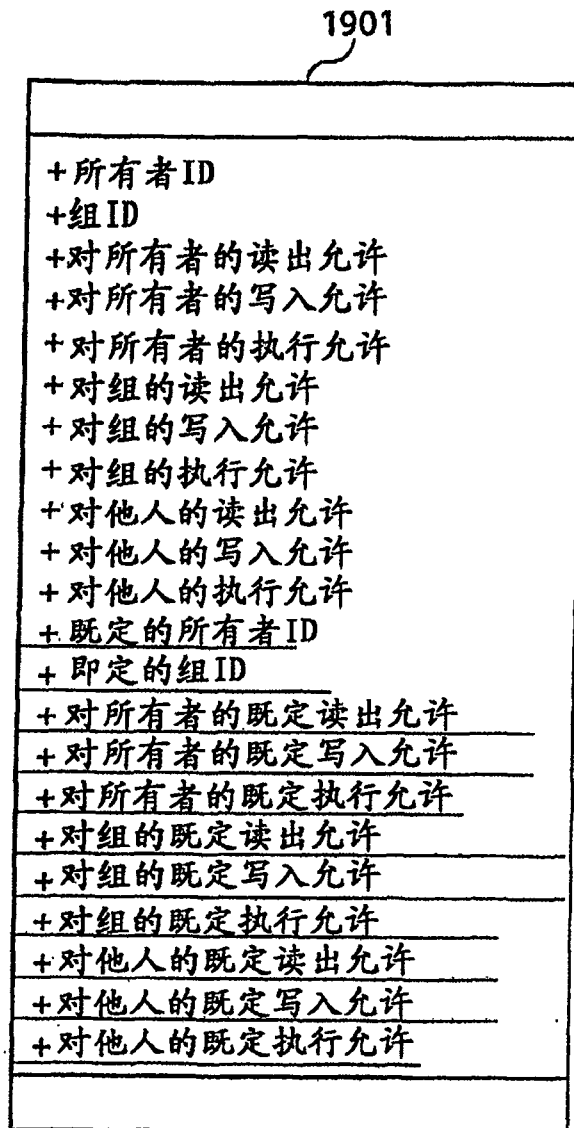 1901
+所有者ID
+组ID
+对所有者的读出允许
+对所有者的写入允许
+对所有者的执行允许
+对组的读出允许
+对组的写入允许
+对组的执行允许
+对他人的读出允许
+对他人的写入允许
+对他人的执行允许
+既定的所有者ID
+即定的组ID
+对所有者的既定读出允许
+对所有者的既定写入允许
+对所有者的既定执行允许
+对组的既定读出允许
+对组的既定写入允许
+对组的既定执行允许
+对他人的既定读出允许
+对他人的既定写入允许
+对他人的既定执行允许